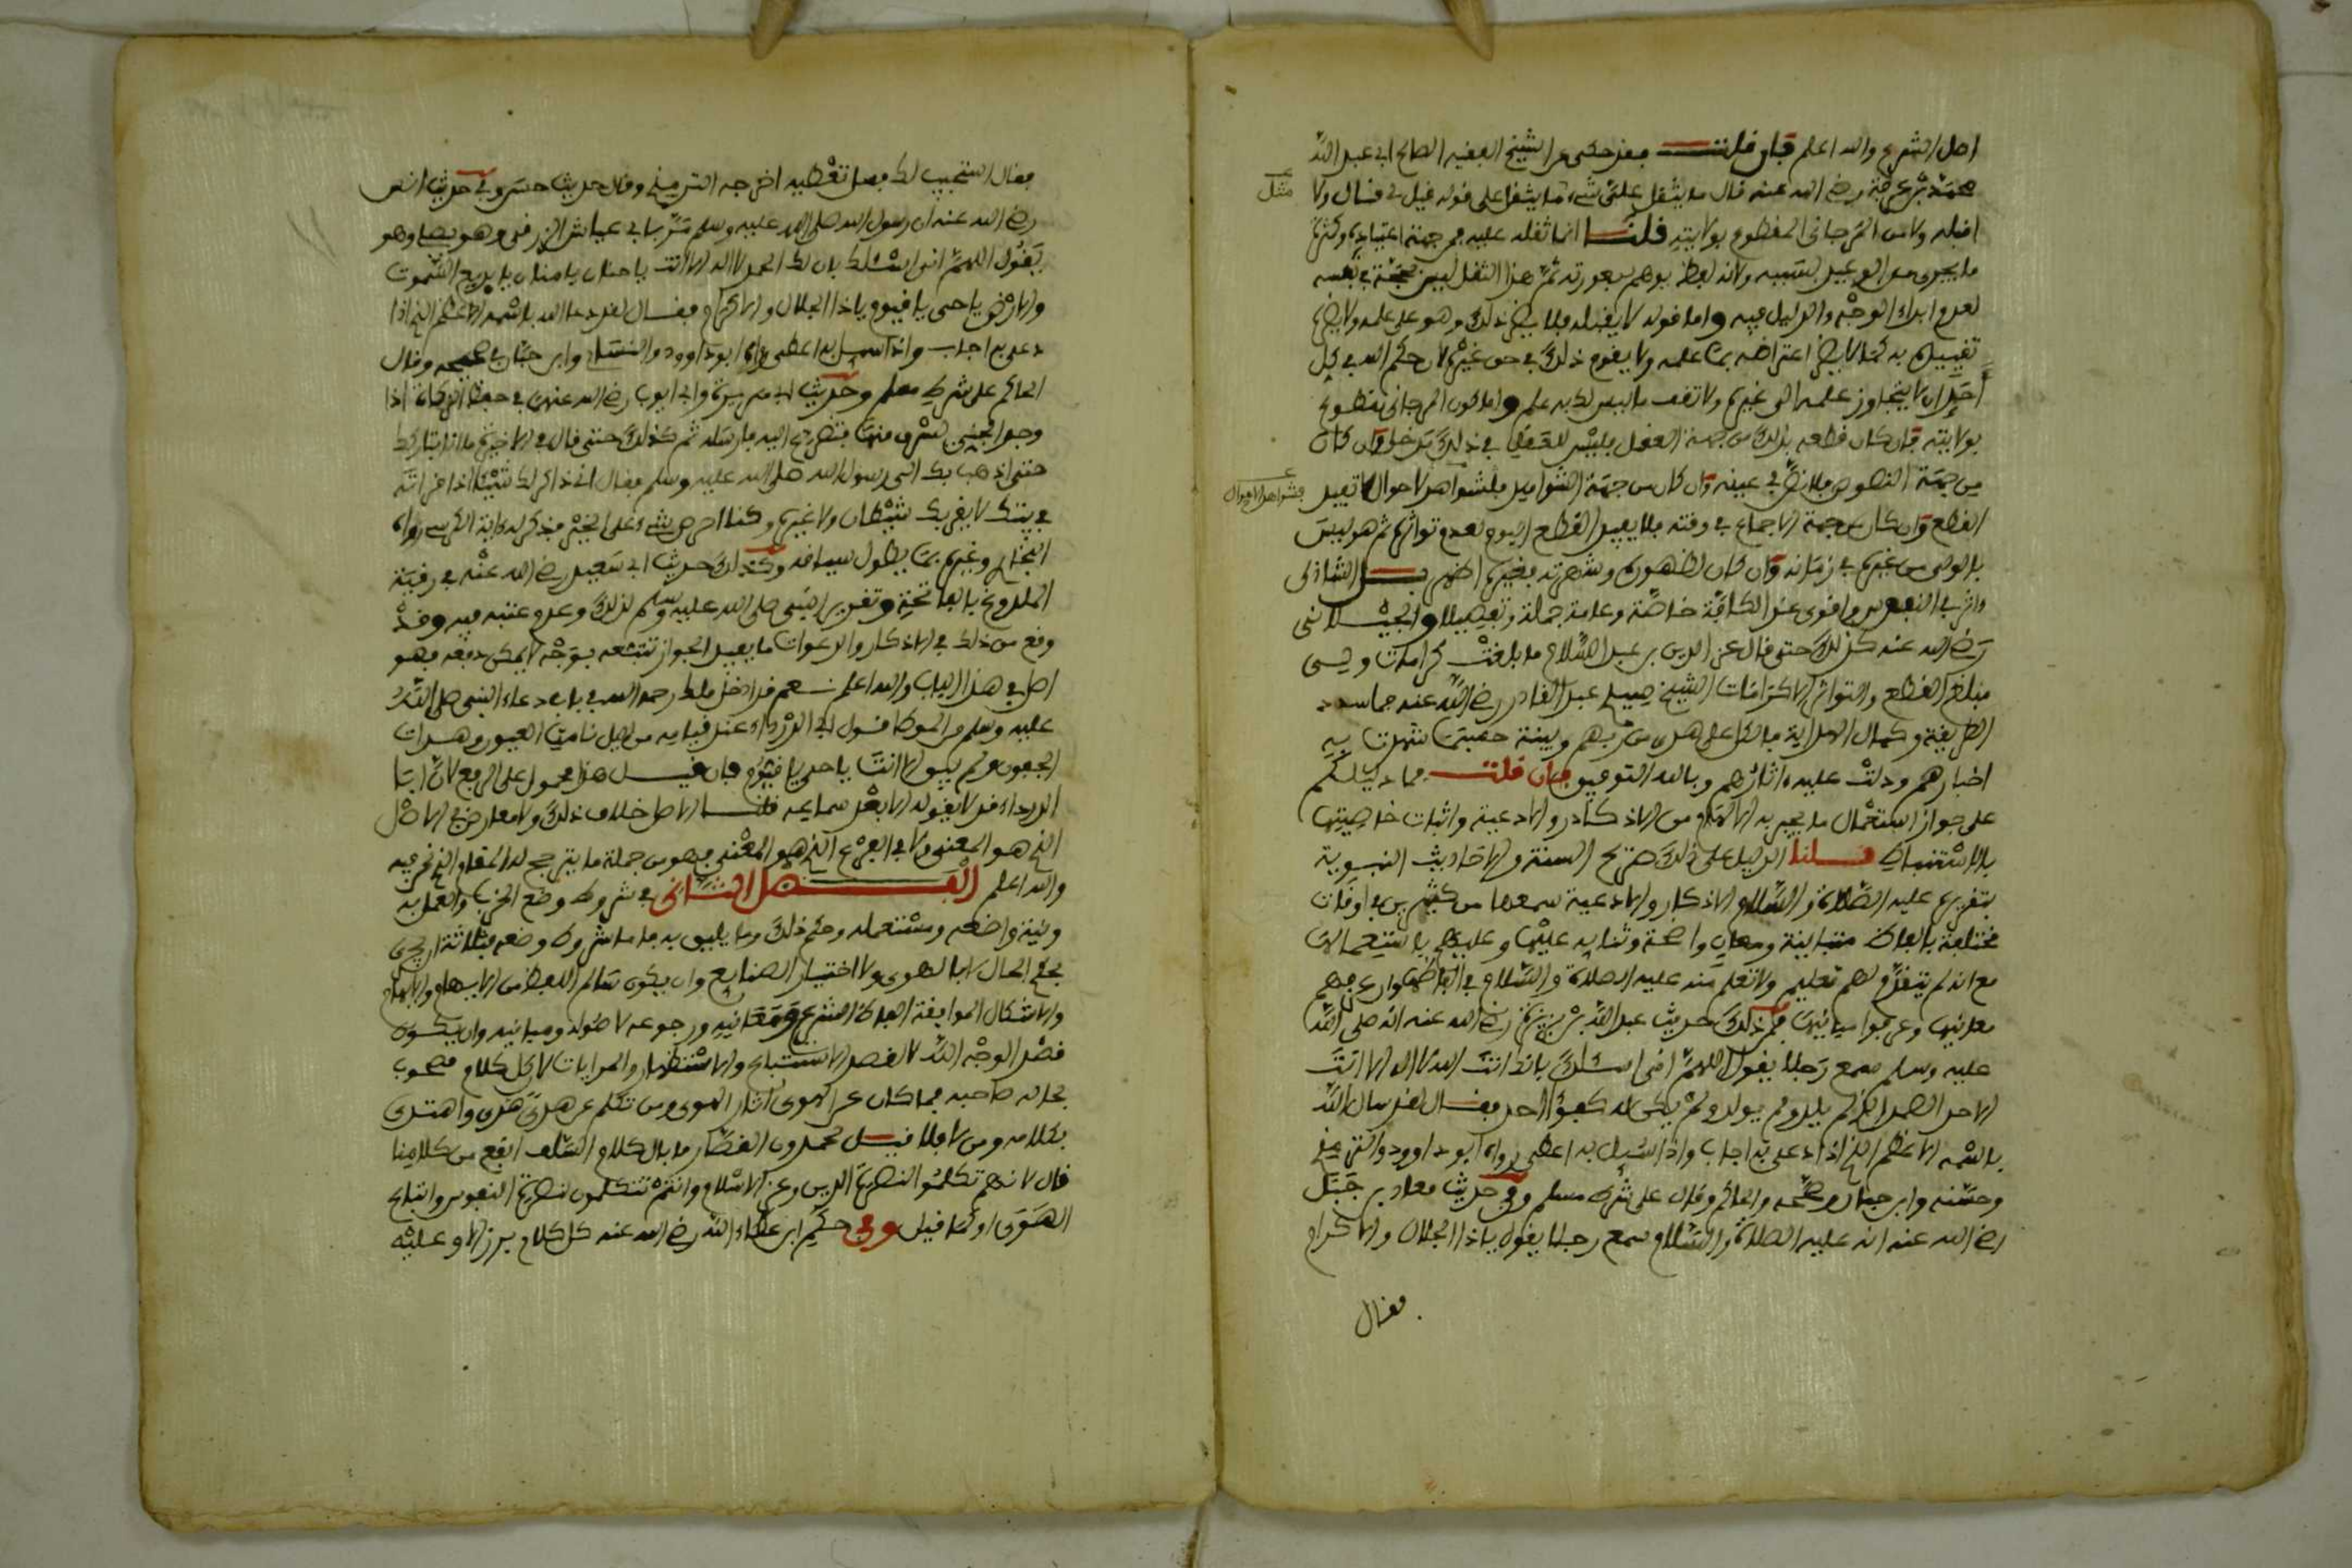 اصل الشرع والله اعلم فان قلت فقد حكى عن الشيخ الفقيه الصالح ابي عبد الله
محمد بن عرفة رضي الله عنه قال ما يثقل علي شيء ما يثقل علي قوله قيل لي فقال ولا
مثل
اقبله ولا من المرجاني المقطوع بولايته قلنا انما ثقله عليه من جهة اعتياده وكثرة
ما يجري من الوعيد بسببه ولانه لفظ يوهم بصورته ثم هذا الثقل ليس بحجة في نفسه
لعدم ابداء الوجه والدليل فيه واما قوله لا يقبله فلا يضر ذلك وهو على علمه ولا يضر
تقييده به كما لا يضر اعتراضه بما علمه ولا يقدح ذلك في حق غيره لان حكم الله في كل
احد ان لا يتجاوز علمه الى غيره ولا تقف ما ليس لك به علم واما كون المرجاني مقطوع
بولايته فان كان قطعه بذلك من جهة العقل فليس للعقل في ذلك مدخل وان كان
من جهة النصوص فلا نص في عينه وان كان من جهة الشواهد فشواهد الاحوال لا تفيد
فشواهد الاحوال
القطع وان كان من جهة الاجماع في وقته فلا يفيد القطع اليوم لعدم تواتره ثم هو ليس
باولى من غيره في زمانه وان كان لظهوره وشهرته فغيره اظهر بل الشاذلي
واثره في النفوس اقوى عند الكافة خاصة وعامة جملة وتفصيلا والجيلاني
رضي الله عنه كذلك حتى قال عز الدين بن عبد السلام ما بلغت كرامات ولي
مبلغ القطع والتواتر الا كرامات الشيخ سيدي عبد القادر رضي الله عنه
الطريقة وكمال الهداية فالكل على هدى من ربهم وبينة حسبما شهدت به
اخبارهم ودلت عليه اثارهم وبالله التوفيق فان قلت فما دليلكم
على جواز استعمال ما يجري به الالهام من الاذكار والادعية واثبات خاصيتها
بالاستنباط قلنا الدليل على ذلك صريح السنة والاحاديث النبوية
بتقريره عليه الصلاة والسلام الاذكار والادعية سمعها من كثيرين في اوقات
مختلفة بالفاظ متباينة ومعان واضحة وثنايه عليها وعليهم باستعمالها
مع انه لم يتقدم لهم تعليم ولا تعلم منه عليه الصلاة والسلام في الفاظها وان عرفهم
معانيها وعرفوا مبانيها فمن ذلك حديث عبد الله بن بريدة رضي الله عنه انه صلى الله
عليه وسلم سمع رجلا يقول اللهم اني اسئلك بانك انت الله لا اله الا انت
الاحد الصمد الذي لم يلد ولم يولد ولم يكن له كفؤا احد فقال لقد سال الله
باسمه الاعظم الذي اذا دعي به اجاب واذا سئل به اعطى رواه ابو داوود والترمذي
وحسنه وابن حبان وصححه والحاكم وقال على شرط مسلم وفي حديث معاذ بن جبل
رضي الله عنه انه عليه الصلاة والسلام سمع رجلا يقول ياذا الجلال والاكرام
فقال
فقال استجيب لك فسل تعطيه اخرجه الترمذي وقال حديث حسن وفي حديث انس
رضي الله عنه ان رسول الله صلى الله عليه وسلم مر بابي عياش الزرقي وهو يصلي وهو
يقول اللهم اني اسئلك بان لك الحمد لا اله الا انت يا حنان يا منان يا بديع السموت
والارض يا حي يا قيوم ياذا الجلال والاكرام فقال لقد دعا الله باسمه الاعظم الذي اذا
دعي به اجاب واذا سيل به اعطى رواه ابو داوود والنسائي وابن حبان في صحيحه وقال
الحاكم على شرط مسلم وحديث ابي هريرة وابي ايوب رضي الله عنهما في حفظ الزكاة اذا
وجد الجني يسرق منها فتضرع اليه فارسله ثم كذلك حتى قال في الاخيرة ما انا بتاركك
حتى اذهب بك الى رسول الله صلى الله عليه وسلم فقال اني ذاكر لك شيئا اذا قراته
في بيتك لا يقربك شيطان ولا غيره وكنا احرص شيء على الخير فذكر له ءاية الكرسي رواه
البخاري وغيره بما يطول سياقه وكذلك حديث ابي سعيد رضي الله عنه في رقية
الملدوغ بالفاتحة وتقرير النبي صلى الله عليه وسلم لذلك وعدم عتبه فيه وقد
وقع من ذلك في الاذكار والدعوات ما يفيد الجواز تتبعه بوجه لا يمكن دفعه فهو
اصل في هذا الباب والله اعلم نعم قد ادخل ملك رحمه الله في باب دعاء النبي صلى الله
عليه وسلم من الموطا قول ابي الدرداء عند قيامه من الليل نامت العيون وهدات
الجفون ولم يبق الا انت يا حي يا قيوم فان قيل هذا محمول على الرفع لان ابا
الدرداء قد لا يقوله الا بعد سماعه قلنا الاصل خلاف ذلك ولا معارض في الاصل
الذي هو المعنى ولا في الفرع الذي هو المغني فهو من جملة ما يترجح له المقام الذي نحن فيه
والله اعلم الفصل الثاني في شروط وضع الحزب والعمل به
ونية واضعه ومستعمله وحكم ذلك وما يليق به فاما شروط وضعه فثلاثة ان يجري
بحكم الحال لا بالهوى ولا اختيار الصنايع وان يكون سالم اللفظ من الايهام والابهام
والاشكال لموافقة الفاظ الشرع ومعانيه ورجوعه لاصوله ومبانيه وان يكون
قصد الوجه الله لا لقصد الاستتباع والاستظهار والمراءات لان كل كلام مصحوب
بحالة صاحبه فما كان عن الهوى اثار الهوى ومن تكلم عن هدى هدى واهتدى
بكلامه ومن لا فلا قيل لحمدون القصار ما بال كلام السلف انفع من كلامنا
قال لانهم تكلموا لنصرة الدين وعز الاسلام وانتم تتكلمون لنصرة النفوس واتباع
الهوى او كما قيل وفي حكم ابن عطاء الله رضي الله عنه كل كلام يبرز الا وعليه